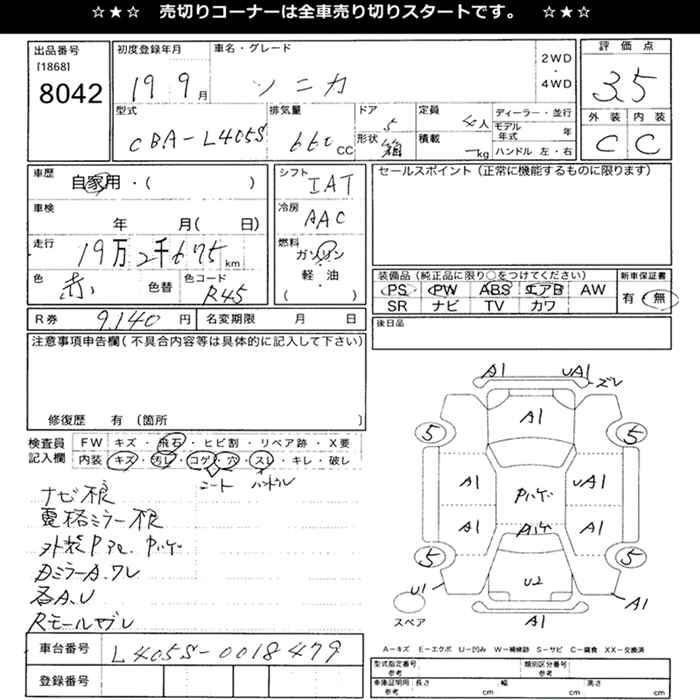 ☆★☆ 売切りコーナーは全車売り切りスタートです。 ☆★☆
出品番号
[1868]
8042
初度登録年月
19 9月
車名・グレード
ソニカ
2WD
・
4WD
評価点
3.5
外装 内装
C C
型式
CBA-L405S
排気量
660cc
ドア
5
形状
箱
定員
4人
積載
-kg
ディーラー・並行
モデル年式 年
ハンドル 左・右
車歴
自家用・( )
車検
年 月( 日)
走行
19万2千675km
色
赤
色替
色コード
R45
シフト
IAT
冷房
AAC
燃料
ガソリン
・
軽・油
( )
セールスポイント(正常に機能するものに限ります)
装備品(純正品に限り○をつけてください)
PS PW ABS エアB AW
SR ナビ TV カワ
新車保証書
有・無
R券 9,140円
名変期限 月 日
後日品
注意事項申告欄(不具合内容等は具体的に記入して下さい)
修復歴 有〔箇所 〕
検査員
記入欄
FW キズ・飛石・ヒビ割・リペア跡・X要
内装 キズ・汚レ・コゲ・穴・スレ・キレ・破レ
シート ハンドル
ナビ根
電格ミラー根
外装P
各A、U
Rモールザレ
A1 UA1 ズレ
A1
5 5
A1 UA1
A1 A1
5 5
U1 U2 A1
A1
スペア
A-キズ E-エクボ U-凹み W-補修跡 S-サビ C-腐食 XX-交換済
車台番号
L405S-0018479
登録番号
型式指定番号
参考
類別区分番号
参考
車庫証明用
参考
長さ cm
幅 cm
高さ cm